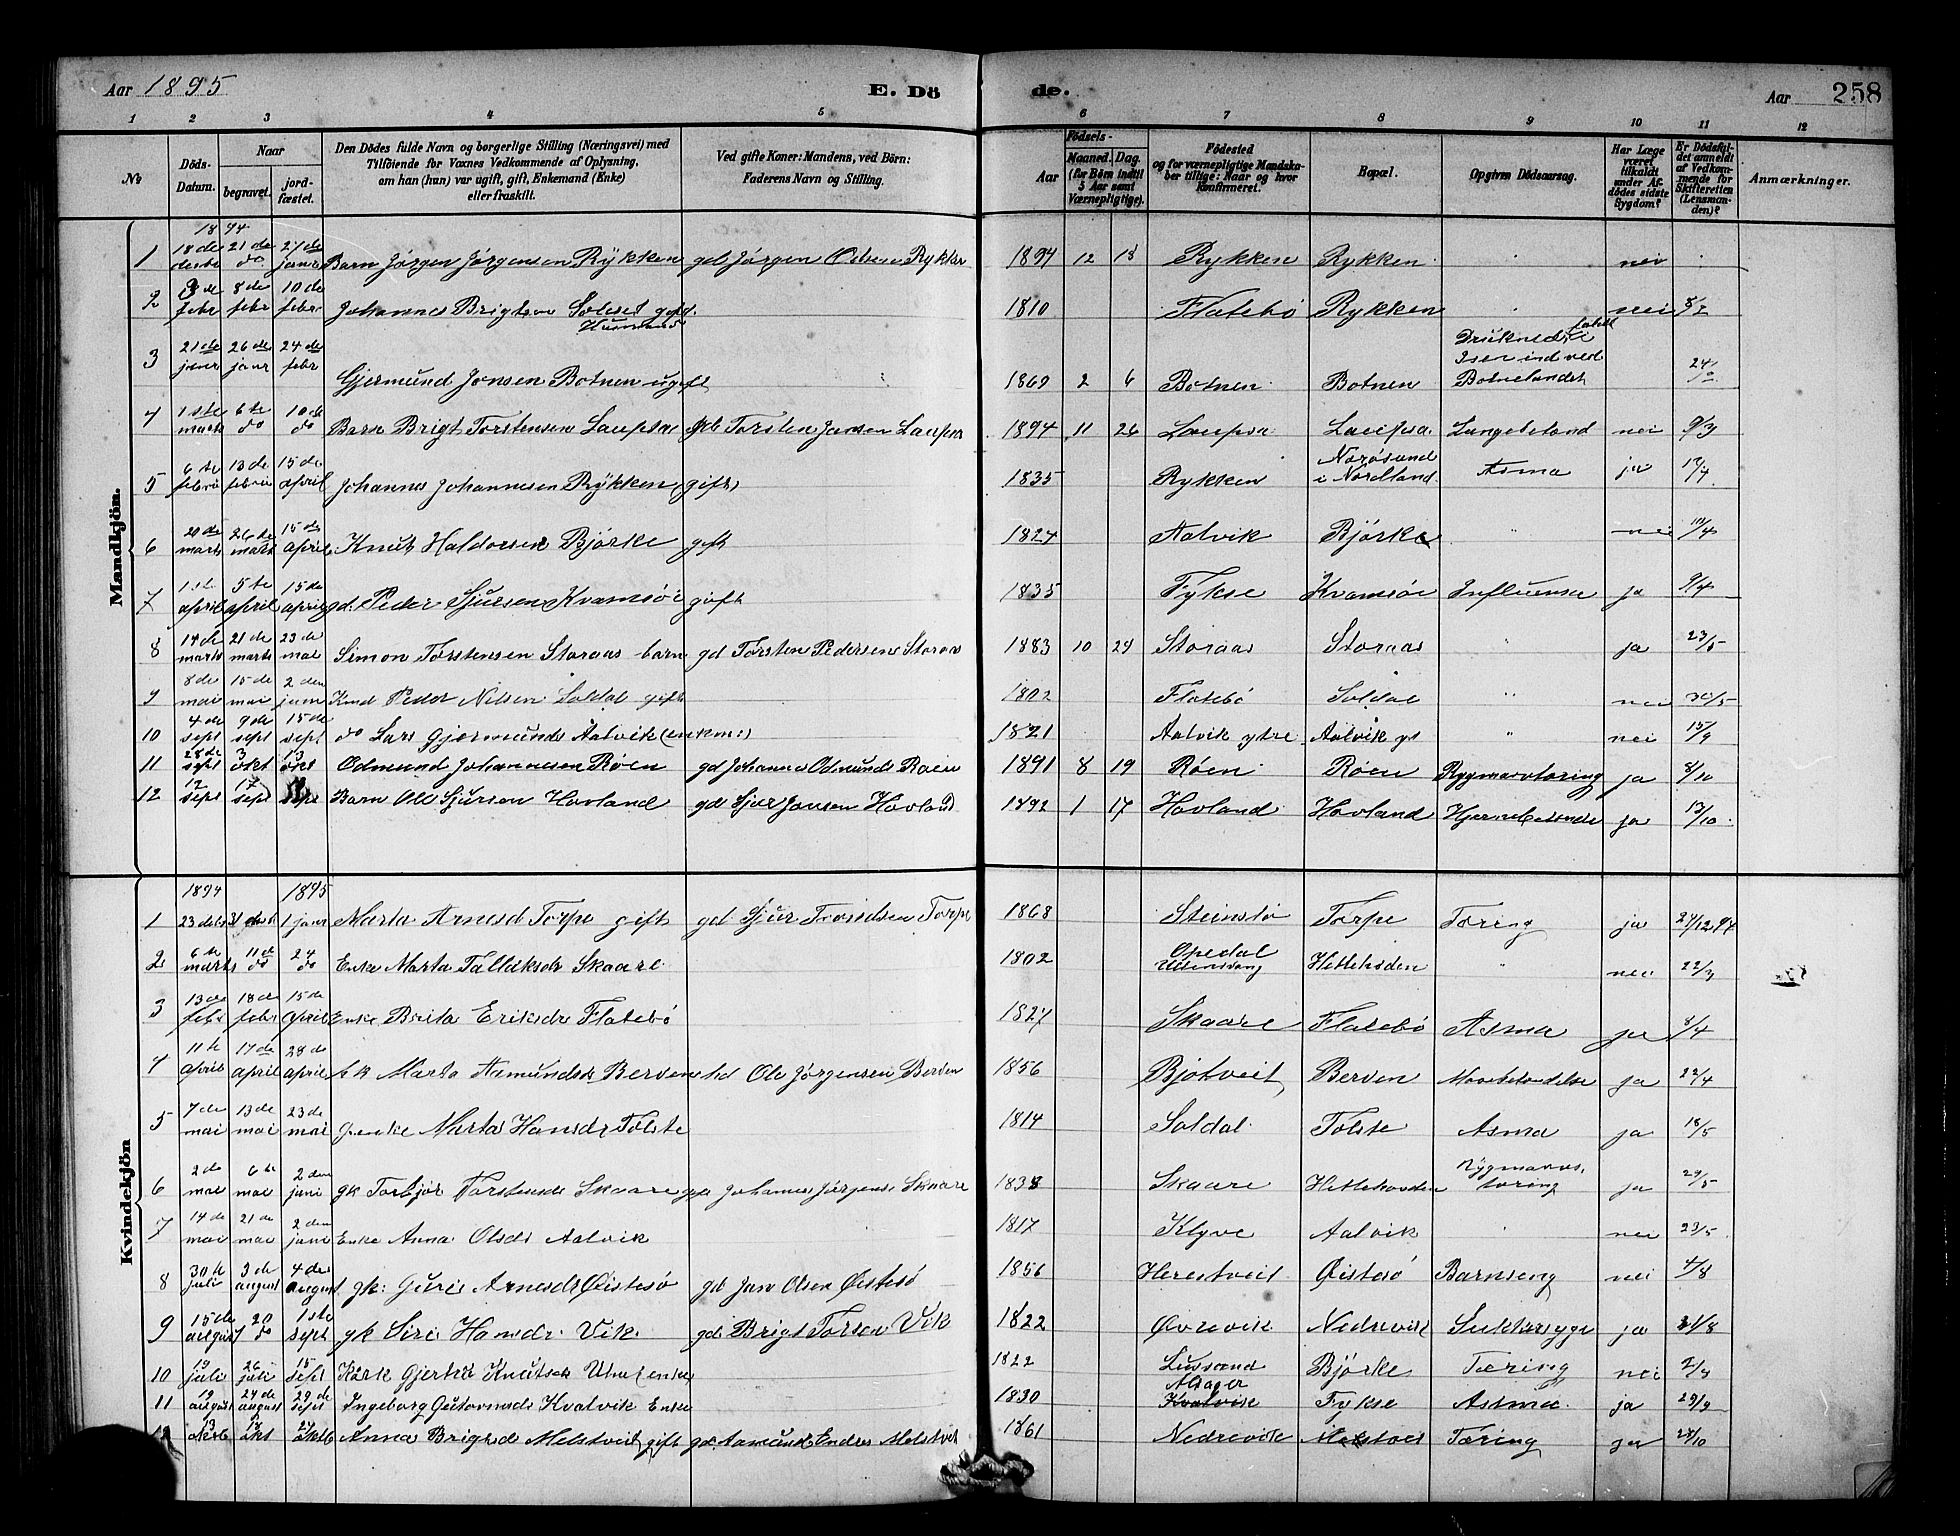 Aar 1895
E. Dö
de.
Aar 258
1 2 3 4 5 6 7 8 9 10 11 12
No
Döds-Datum.
Naar
begravet.
jord-fæstet.
Den Dödes fulde Navn og borgerlige Stilling (Næringsvei) med
Tilföiende for Voxnes Vedkommende af Oplysning,
om han (hun) var ugift, gift, Enkemand (Enke)
eller fraskilt.
Ved gifte Koner: Mandens, ved Börn:
Faderens Navn og Stilling.
Aar
Födsels-
Maaned. Dag.
(for Börn indtil
5 Aar samt
Værnepligtige).
Födested
og for værnepligtige Mandska-
ber tillige: Naar og hvor
konfirmeret.
Bopæl.
Opgiven Dödsaarsag.
Har Læge
været
tilkaldt
under Af-
dödes sidste
Sygdom?
Er Dödsfal-
det anmeldt
af Vedkom-
mende for
Skifteretten
(Lensman-
den)?
Anmærkninger.
Mandkjön.
1894
1 18de decbr 21de do 27de janr Barn Jørgen Jørgensen Rykken gd Jørgen Odsen Rykken 1894 12 18 Rykken Rykken " nei
2 3de febr 8de febr 10de febr Johannes Brigtsen Soleset gift Husmand 1810 Flatebø Rykken " nei 8/2
3 21de janr 26de janr 24de febr Gjermund Jonsen Botnen ugift 1869 2 6 Botnen Botnen Druknede, faldt i Isen ind ved Botnelandet 24/2
4 1ste marts 6te do 10de do Barn Brigt Torstensen Laupsa Torsten Jansen Laupsa 1894 11 26 Laupsa Laupsa Lungebetænd nei 9/3
5 6te febru 13de febru 15de april Johannes Johannesen Rykken (gift) 1835 Rykken Narøsund i Nordland Asma ja 12/4
6 20de marts 26te marts 15de april Knut Haldorsen Bjørke gift 1824 Aalvik Bjørke " nei 10/4
7 1ste april 5te april 15de april gd. Peder Sjursen Kvamsøe gift 1835 Fykse Kvamsøe Influensa ja 9/4
8 14de marts 21de marts 23de mai Simon Torstensen Storaas barn gd Torsten Pedersen Storaas 1883 10 29 Storaas Storaas " ja 23/5
9 8de mai 15de mai 2den juni Kmd Peder Nilsen Soldal gift 1802 Flatebø Soldal " nei 30/5
10 4de sept 9de sept 15de sept do Lars Gjermunds Aalvik (enkm:) 1821 Aalvik ytre Aalvik yt " nei 15/9
11 28de sept 3 okt 13 okt Odmund Johannesen Røen gd Johannes Odmunds Røen 1891 8 19 Røen Røen Rygmarvtæring ja 8/10
12 12 sept 17 sept sept Barn Ole Sjursen Hovland gd Sjur Jansen Hovland 1892 1 17 Hovland Hovland Hjernebetænde ja 13/10
Kvindekjön
1894 1895
1 23 decbr 31 decbr 1 janr Marta Arnesd Torpe gift gd Sjur Trondsen Torpe 1868 Steinstø Torpe Tæring ja 24/12 94
2 6te marts 11de do 24 do Enke Marta Tallaksdr Skaare 1802 Opedal Ullensvang Hetlehoden " nei 22/3
3 13de febr 18de febr 15de april Enke Brita Eriksdr Flatebø 1827 Skaare Flatebø Asma ja 8/4
4 11te april 17de april 28de april Marta Aamundsdr Berven Ole Jørgensen Berven 1856 Bjotveit Berven ja 22/4
5 7de mai 13de mai 23de mai enke Marta Hansdr Tolste 1814 Soldal Tolste Asma ja 18/5
6 2de mai 6te mai 2den juni gk Torbjør Torstensdr Skaare gd Johannes Jørgens Skaare 1838 Skaare Hetlehovden Rygmarvstæring ja 29/5
7 14de mai 21de mai 2den juni Enke Anna Olsdr Aalvik 1817 Klyve Aalvik " nei 23/5
8 30te juli 3de august 4de august gk: Guri Arnesdr Øistesø gd Jon Olsen Øistesø 1856 Herestveit Øistesø Barnseng nei 4/8
9 15de august 20 do 1ste sept gk Siri Hansdr Vik gd Brigt Torsen Vik 1822 Øvrevik Nedrevik Sukkersyge ja 21/8
10 19 juli 26 juli 15 sept Kark Gjertrud Knutsdr Utne (enke) 1822 Lussand Bjørke Tæring nei 2/9
11 19 august 24de august 29de sept Ingeborg Guttormsdr Kvalvik Enke 1830 Kvalvik Fykse Astma ja 29/9
12 13 okt 24 oktb Anna Brigtsd Melstveit gift gd Aamund Endres Melstvet 1861 Nedrevik Melstvei Tæring ja 24/10